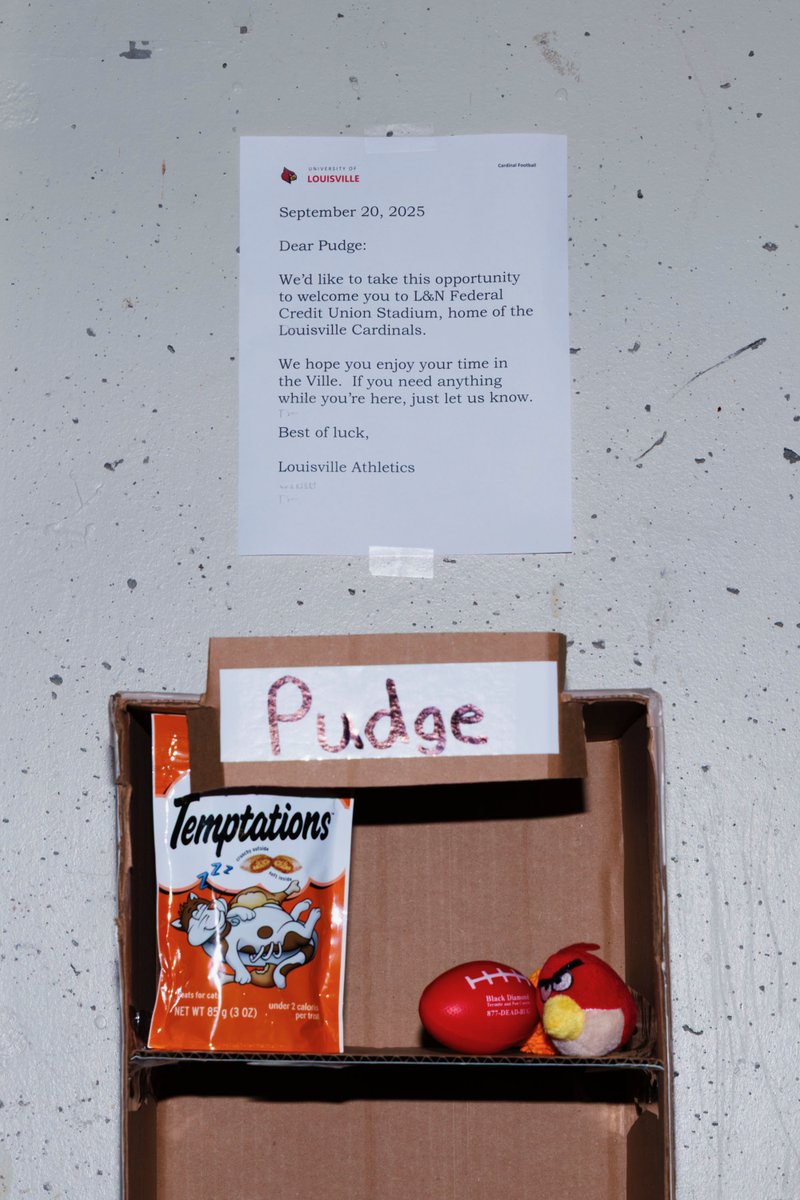 UNIVERSITY OF
LOUISVILLE
Cardinal Football
September 20, 2025
Dear Pudge:
We'd like to take this opportunity
to welcome you to L&N Federal
Credit Union Stadium, home of the
Louisville Cardinals.
We hope you enjoy your time in
the Ville. If you need anything
while you're here, just let us know.
Best of luck,
Louisville Athletics
Pudge
Temptations
crunchy outside
soft inside
Z Z Z
treats for cats
NET WT 85 g (3 OZ)
under 2 calories
per treat
Black Diamond
Termite and Pest Control
877-DEAD-BUG